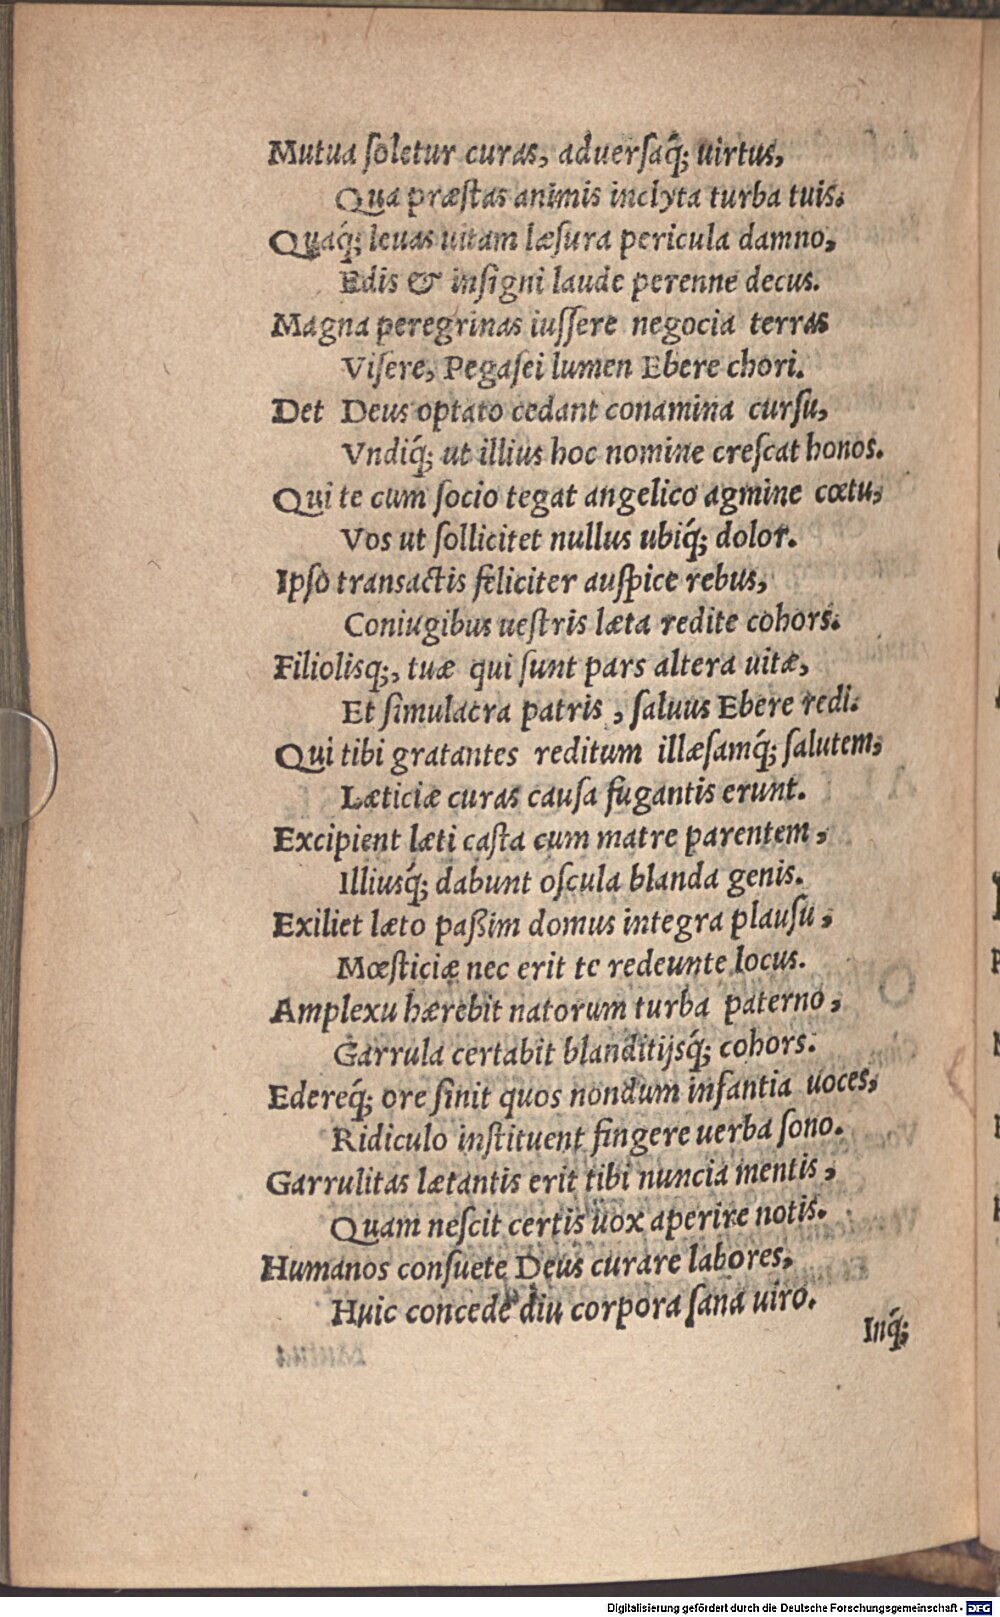 Mutua ſoletur curas, aduerſaq́; uirtus,
Qua præſtas animis inclyta turba tuis.
Quaq́; leuas uitam læſura pericula damno,
Edis & inſigni laude perenne decus.
Magna peregrinas iuſſere negocia terras
Viſere, Pegaſei lumen Ebere chori.
Det Deus optato cedant conamina curſu,
Vndiq́; ut illius hoc nomine creſcat honos.
Qui te cum ſocio tegat angelico agmine cœtu,
Vos ut ſollicitet nullus ubiq́; dolor.
Ipſo transactis feliciter auſpice rebus,
Coniugibus ueſtris læta redite cohors.
Filiolisq;, tuæ qui ſunt pars altera uitæ,
Et ſimulacra patris, ſaluus Ebere redi.
Qui tibi gratantes reditum illæſamq́; ſalutem,
Læticiæ curas cauſa fugantis erunt.
Excipient læti caſta cum matre parentem,
Illiusq́; dabunt oſcula blanda genis.
Exiliet læto paßim domus integra plauſu,
Mœſticiæ nec erit te redeunte locus.
Amplexu hærebit natorum turba paterno,
Garrula certabit blanditijsq́; cohors.
Edereq́; ore ſinit quos nondum infantia uoces,
Ridiculo inſtituent fingere uerba ſono.
Garrulitas lætantis erit tibi nuncia mentis,
Quam neſcit certis uox aperire notis.
Humanos conſuete Deus curare labores,
Huic concede diu corpora ſana uiro.
Inq́;
Digitalisierung gefördert durch die Deutsche Forschungsgemeinschaft - DFG